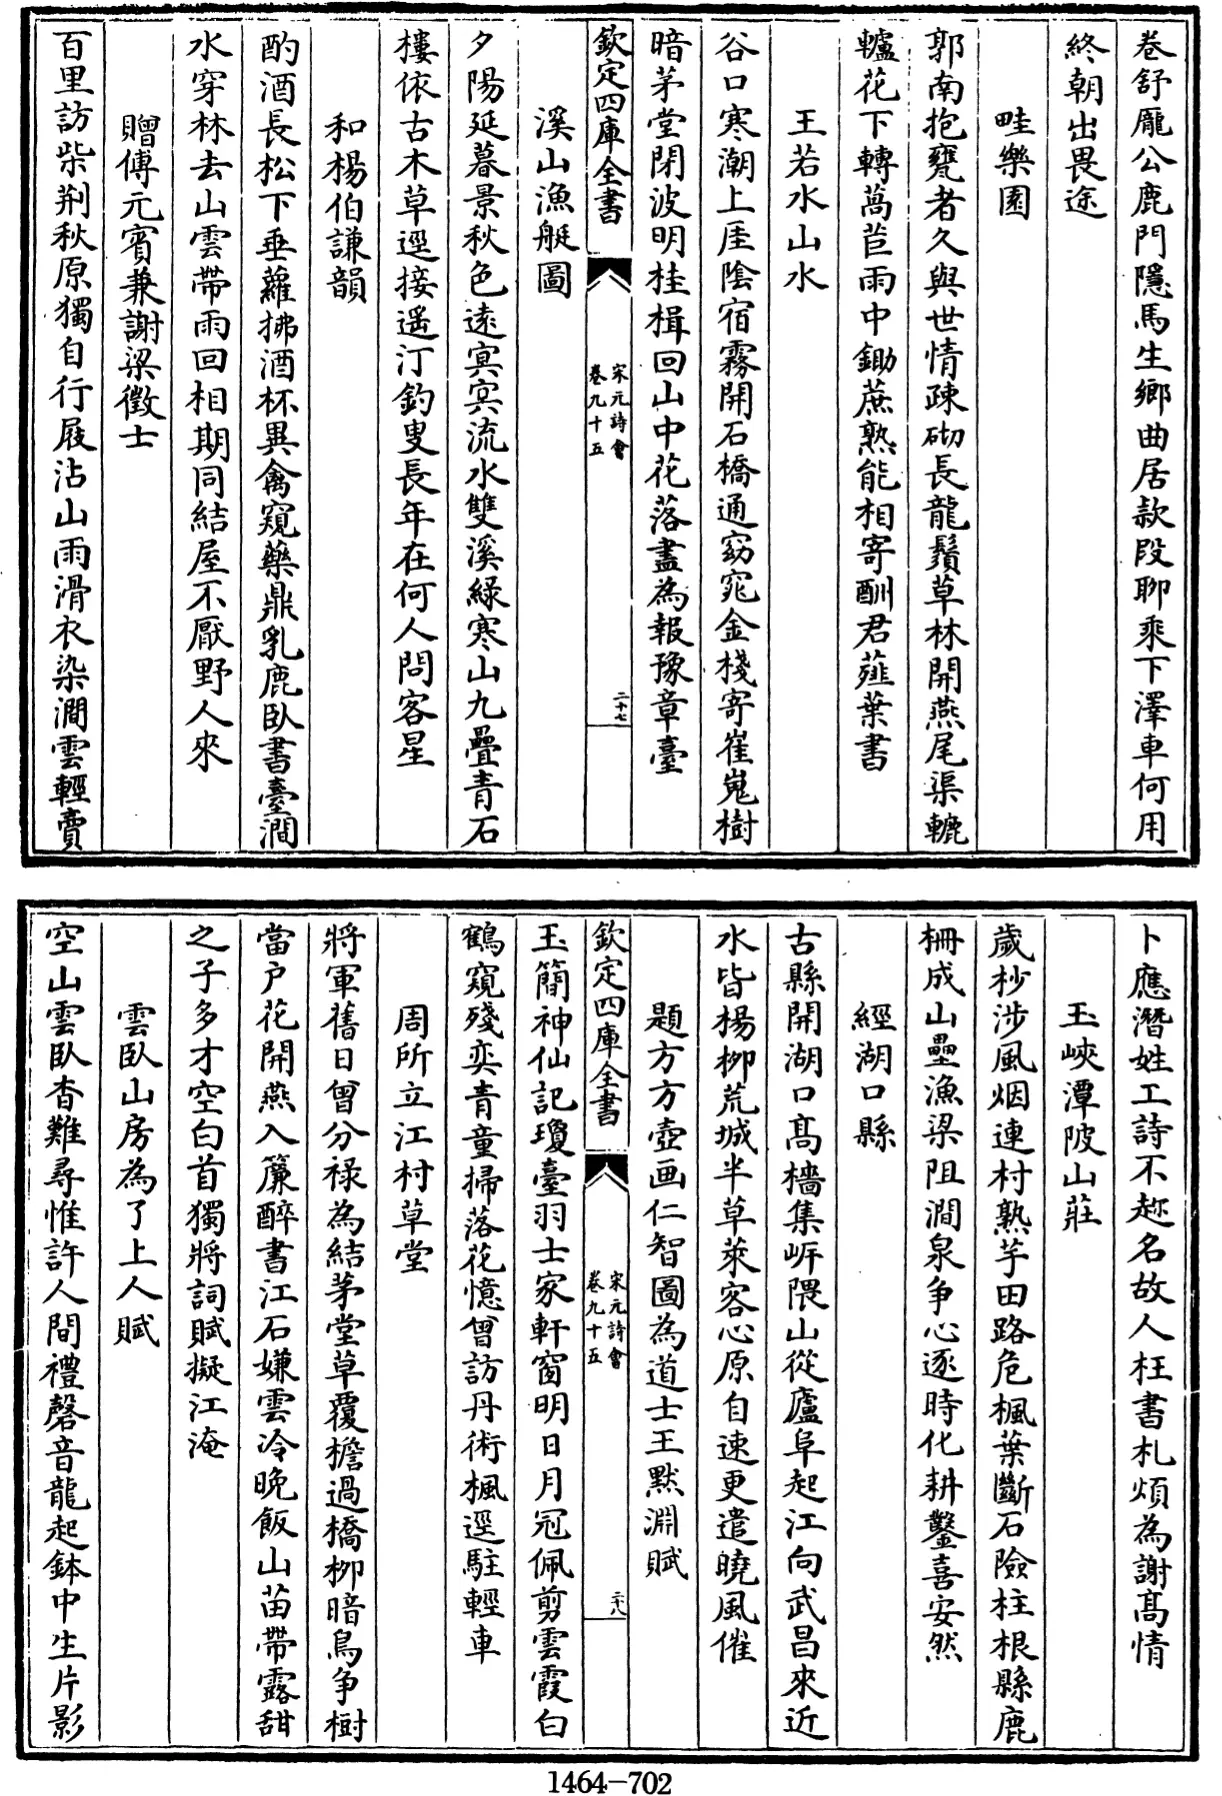 卷舒龐公鹿門隱馬生鄉曲居款段聊乘下澤車何用
終朝出畏途
畦樂園
郭南抱甕者久與世情疎砌長龍鬚草林開燕尾渠轆
轤花下轉萵苣雨中鋤蔗熟能相寄酬君薤葉書
王若水山水
谷口寒潮上厓陰宿霧開石橋通窈窕金棧寄崔嵬樹
暗茅堂閉波明桂楫回山中花落盡為報豫章臺
欽定四庫全書
宋元詩會
卷九十五
二十七
溪山漁艇圖
夕陽延暮景秋色遠冥冥流水雙溪緑寒山九疊青石
樓依古木草逕接遥汀釣叟長年在何人問客星
和楊伯謙韻
酌酒長松下垂蘿拂酒杯異禽窺藥鼎乳鹿臥書臺澗
水穿林去山雲帶雨回相期同結屋不厭野人來
贈傅元賓兼謝梁徵士
百里訪柴荆秋原獨自行屐沾山雨滑衣染澗雲輕賣
卜應潛姓工詩不趂名故人枉書札煩為謝髙情
玉峽潭陂山莊
歲杪涉風烟連村熟芋田路危楓葉斷石險柱根縣鹿
柵成山壘漁梁阻澗泉争心逐時化耕鑿喜安然
經湖口縣
古縣開湖口髙檣集㟁隈山從廬阜起江向武昌來近
水皆楊栁荒城半草萊客心原自速更遣曉風催
題方方壺画仁智圖為道士王默淵賦
欽定四庫全書
宋元詩會
卷九十五
二十八
玉簡神仙記瓊臺羽士家軒窗明日月冠佩剪雲霞白
鶴窺殘奕青童掃落花憶曾訪丹術楓逕駐輕車
周所立江村草堂
將軍舊日曾分禄為結茅堂草覆檐過橋栁暗鳥争樹
當户花開燕入簾醉書江石嫌雲冷晚飯山苗帶露甜
之子多才空白首獨將詞賦擬江淹
雲臥山房為了上人賦
空山雲臥杳難尋惟許人間禮磬音龍起鉢中生片影
1464-702